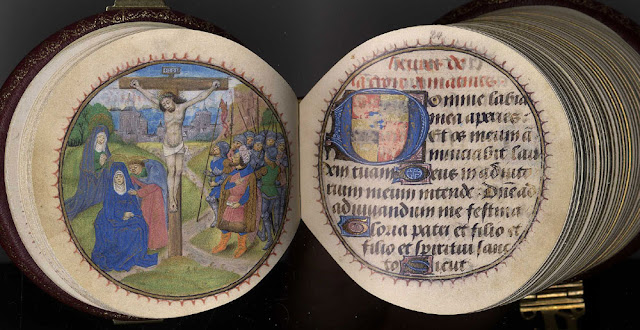 INRI
heures de la
croix a matines
Domine labia
mea aperies:
Et os meum a
nunciabit lau
dem tuam Deus in adiuto
rium meum intende Dne ad
adiuuandum me festina
Gloria patri et filio et
filio et spiritui sanc
to Sicut